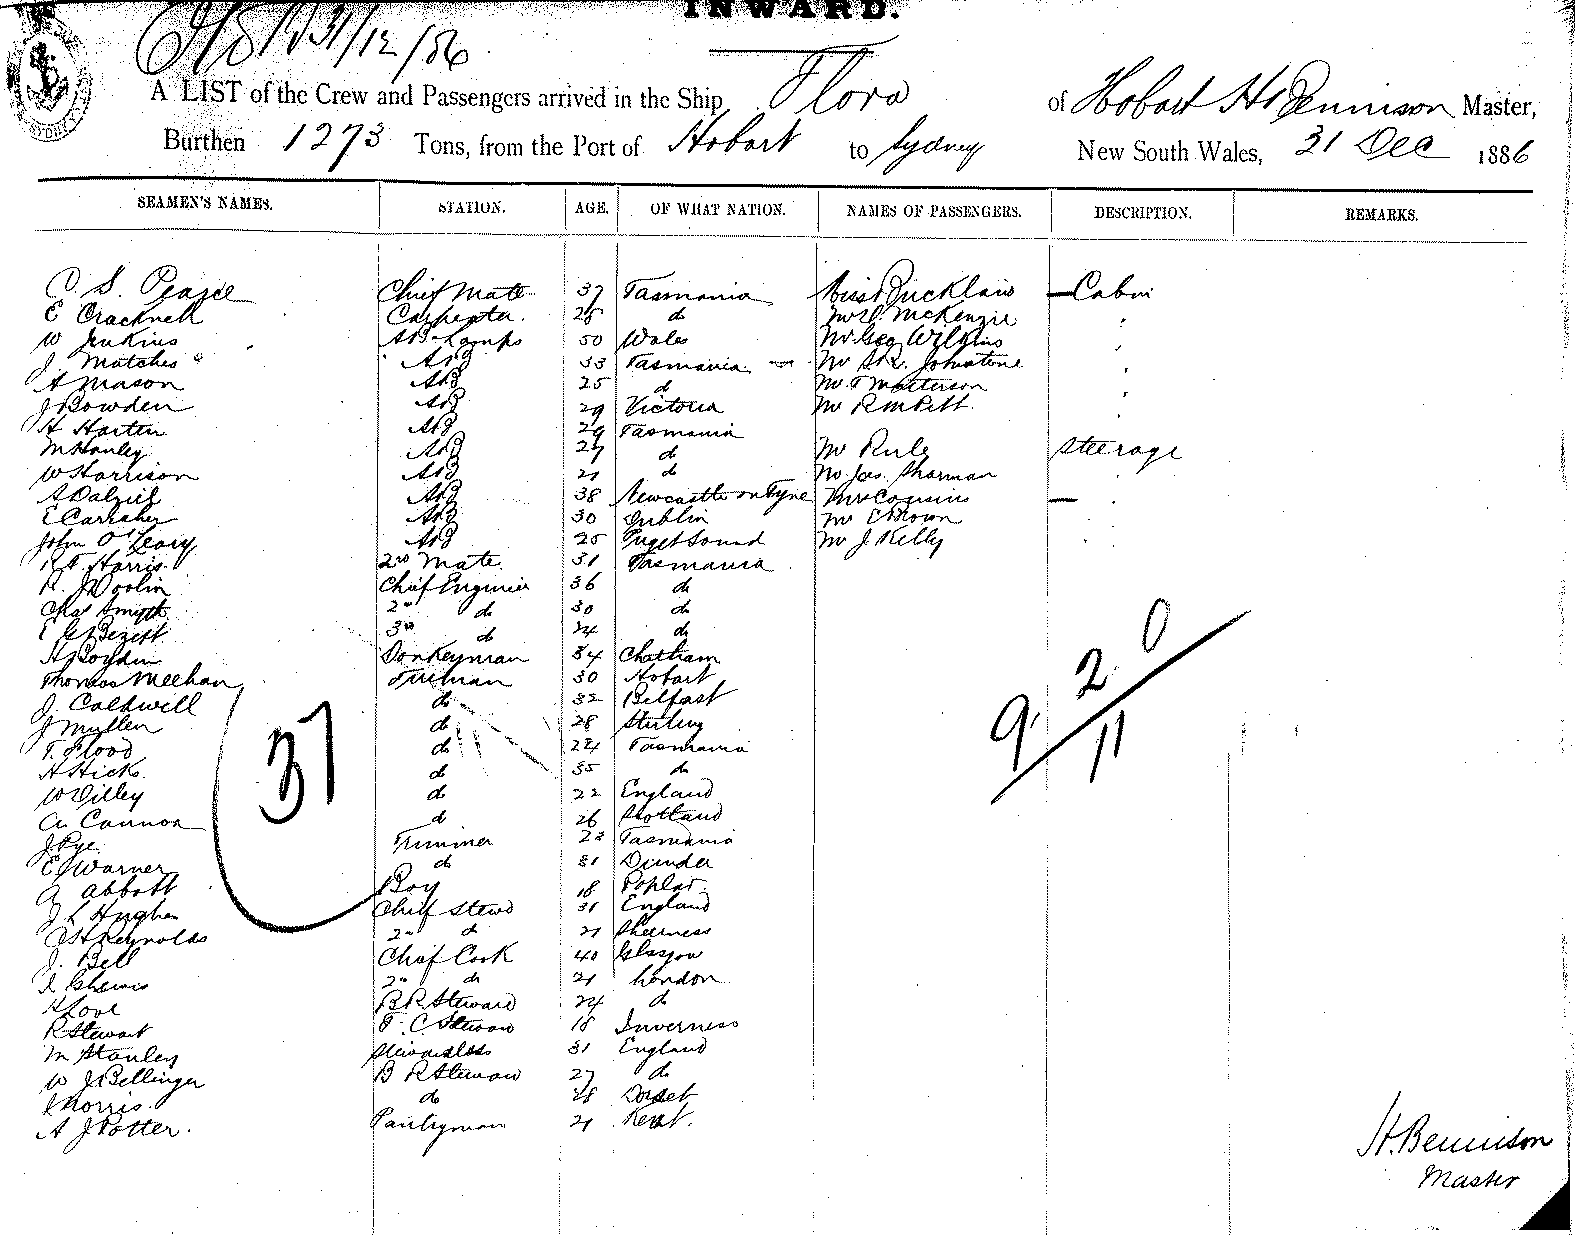 INWARD.
31/12/86
A LIST of the Crew and Passengers arrived in the Ship Flora of Hobart H Bennison Master,
Burthen 1273 Tons, from the Port of Hobart to Sydney New South Wales, 31 Dec 1886
SEAMEN'S NAMES. STATION. AGE. OF WHAT NATION. NAMES OF PASSENGERS. DESCRIPTION. REMARKS.
C. S. Pearce Chief Mate 37 Tasmania Miss — Cabin
E Cracknell Carpenter. 25 do McKenzie
W Jenkins AB Lamps 50 Wales Mr Geo Wilkins
J. Matches AB 33 Tasmania — Mr Johnstone
A Mason AB 25 do Mr T Matterson
J Bowden AB 29 Victoria Mr R
H Harten AB 29 Tasmania
M Hanley AB 27 do Mr Rule Steerage
W Harrison AB 21 do Mr Jas. Sharman
A Dalziel AB 38 Newcastle on Tyne Mrs Cousins —
E Carraher AB 30 Dublin Mr C Brown
John O'Leary AB 25 Puget Sound Mr J Kelly
Harris. 2nd Mate. 31 Tasmania
R. J Woolin Chief Engineer 36 do
Chas Smyth 2nd do 30 do
E G Bezett 3rd do 24 do
H Boyden Donkeyman 34 Chatham
Thomas Meehan Fireman 30 Hobart
J. Caldwell do 32 Belfast
J Mullen do 28 Stirling
T. Flood do 24 Tasmania
H Hicks. do 35 do
W Dilley do 22 England
A. Cannon do 26 Scotland
J Pye Trimmer 23 Tasmania
E J Warner do 31 Dundee
G Abbott Boy 18 Poplar.
J L Hughes Chief Stewd 31 England
C H Reynolds 2nd do 21 Sheerness
J. Bell Chief Cook 40 Glasgow
Chewis 2nd do 21 London
H Love B R Steward 24 do
R Stewart F. C. Steward 18 Inverness
M Stanley Stewardess 31 England
W J Bellinger B R Steward 27 do
Morris. do 28 Dorset
A J Potter. Pantryman 21 Kent.
37
9. 2 0
11
H. Bennison
Master